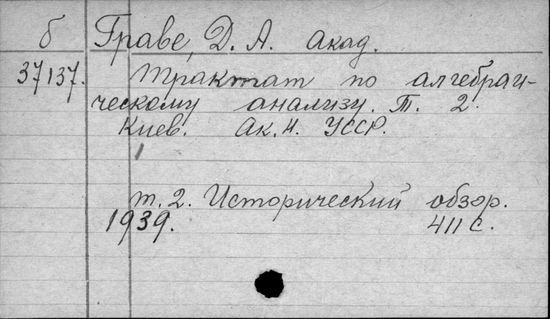 б Граве, Д. А. акад.
37137. Трактат по алгебраи-
ческому анализу. Т. 2.
Киев. Ак. Н. УССР.
т. 2. Исторический обзор.
1939. 411 с.